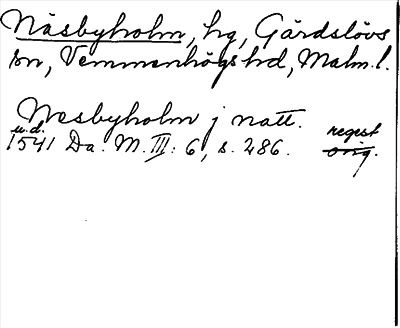 Näsbyholm, hg, Gärdslövs
sn, Vemmenhögs hd, Malm. l.
Nesbyholm j natt.
u.d. regist
1541 Da. M. III: 6, s. 286. orig.